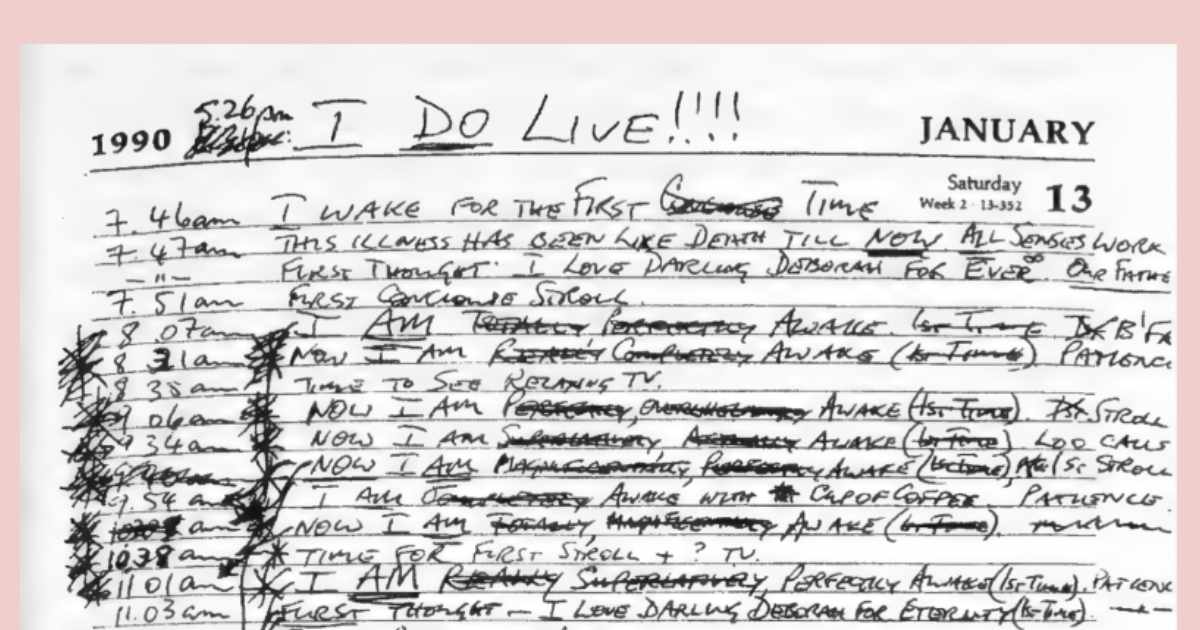 1990 5.26pm I DO LIVE!!!! JANUARY
Saturday
Week 2 · 13-352 13
7.46am I WAKE FOR THE FIRST TIME
7.47am THIS ILLNESS HAS BEEN LIKE DEATH TILL NOW ALL SENSES WORK
-"- FIRST THOUGHT: I LOVE DARLING DEBORAH FOR EVER∞. OUR FATHE
7.51am FIRST CONCLUSIVE STROLL.
8 07am I AM TOTALLY PERFECTLY AWAKE. 1st TIME B'FA
8 31am NOW I AM REALLY COMPLETELY AWAKE (1st TIME) PATIENC
8 38am TIME TO SEE RELAXING TV.
9 06am NOW I AM PERFECTLY, OVERWHELMINGLY AWAKE (1st TIME). 1st STROLL
9 34am NOW I AM SUPERLATIVELY, ACTUALLY AWAKE (1st TIME) LOO CALLS
NOW I AM AWAKE (1st TIME) 1st STROLL
9.54 am I AM COMPLETELY AWAKE WITH CUP OF COFFEE. PATIENCE
am NOW I AM TOTALLY, AWAKE (1st TIME).
1038am TIME FOR FIRST STROLL + ? TV.
11 01am I AM REALLY SUPERLATIVELY PERFECTLY AWAKE (1st TIME). PATIENC
11.03am FIRST THOUGHT – I LOVE DARLING DEBORAH FOR ETERNITY (1st TIME). –"–